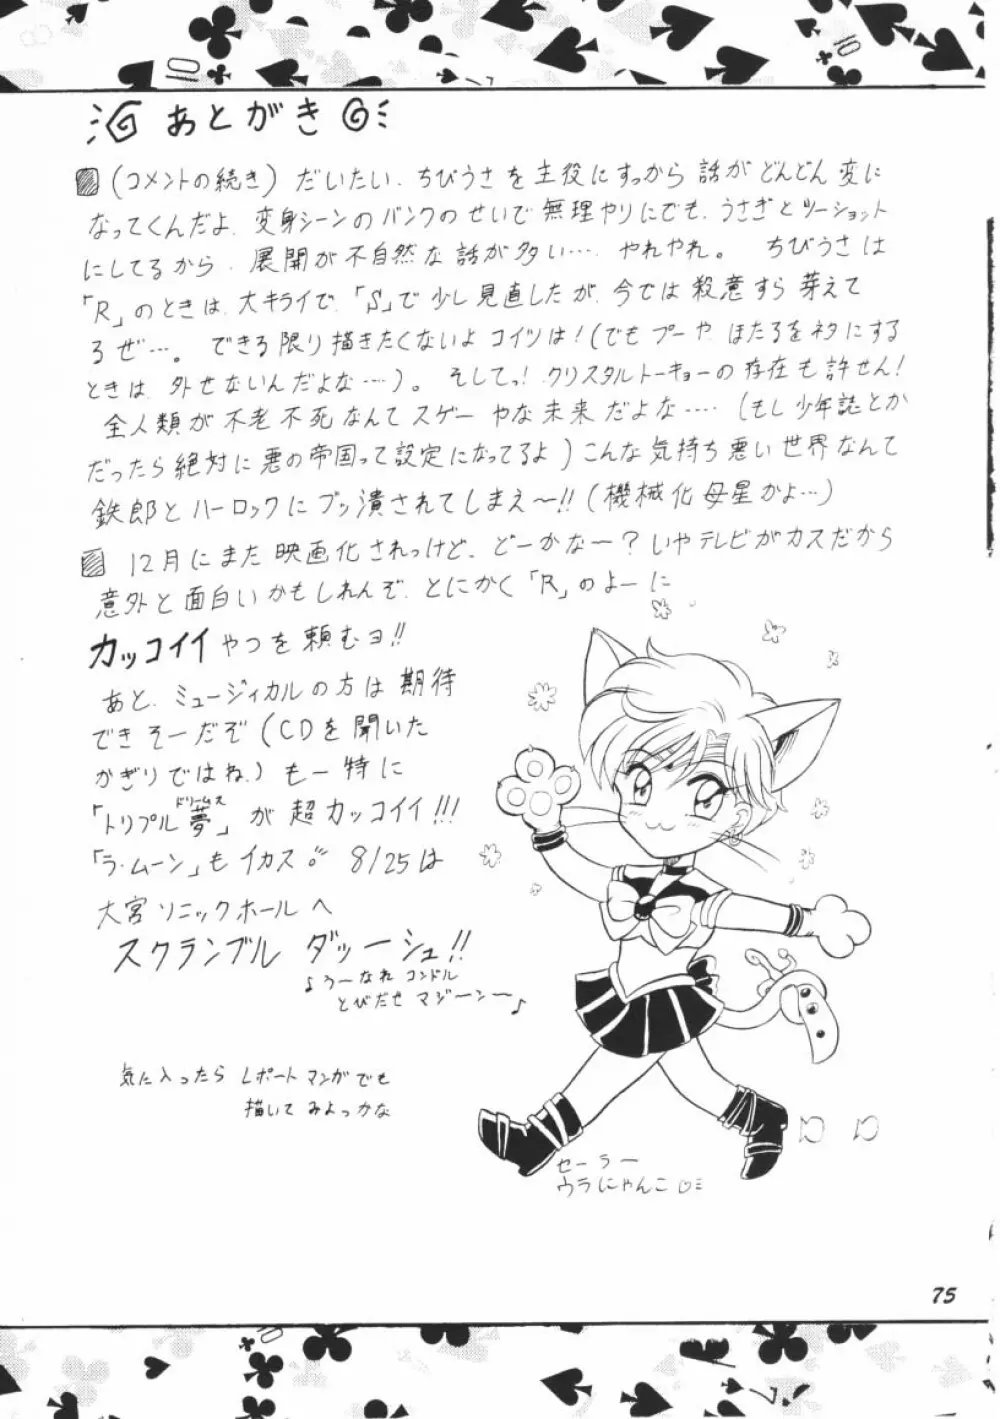 あとがき
(コメントの続き) だいたい、ちびうさを主役にすっから話がどんどん変に
なってくんだよ、変身シーンのバンクのせいで無理やりにでも、うさぎとツーショット
にしてるから、展開が不自然な話が多い…、やれやれ。 ちびうさは
「R」のときは、大キライで、「S」で少し見直したが、今では殺意すら芽えて
るぜ…。 できる限り描きたくないよコイツは!(でもプーや ほたるをネタにする
ときは、外せないんだよな…)。 そしてっ!クリスタルトーキョーの存在も許せん!
全人類が不老不死なんてスゲーやな未来だよな…(もし少年誌とか
だったら絶対に悪の帝国って設定になってるよ)こんな気持ち悪い世界なんて
鉄郎とハーロックにブッ潰されてしまえ〜!!(機械化母星かよ…)
12月にまた映画化されっけど、どーかな〜?いやテレビがカスだから
意外と面白いかもしれんぞ、とにかく「R」のよーに
カッコイイやつを頼むヨ!!
あと、ミュージィカルの方は期待
できそーだぞ(CDを聞いた
かぎりではね)もー特に
「トリプル夢」が超カッコイイ!!!
ドリームス
「ラ・ムーン」もイカス 8/25は
大宮ソニックホールへ
スクランブル ダッーシュ!!
♪うーなれ コンドル
とびだせ マジーン〜♪
気に入ったら レポートマンガでも
描いてみよっかな
セーラー
ウラにゃんこ
75
10
10